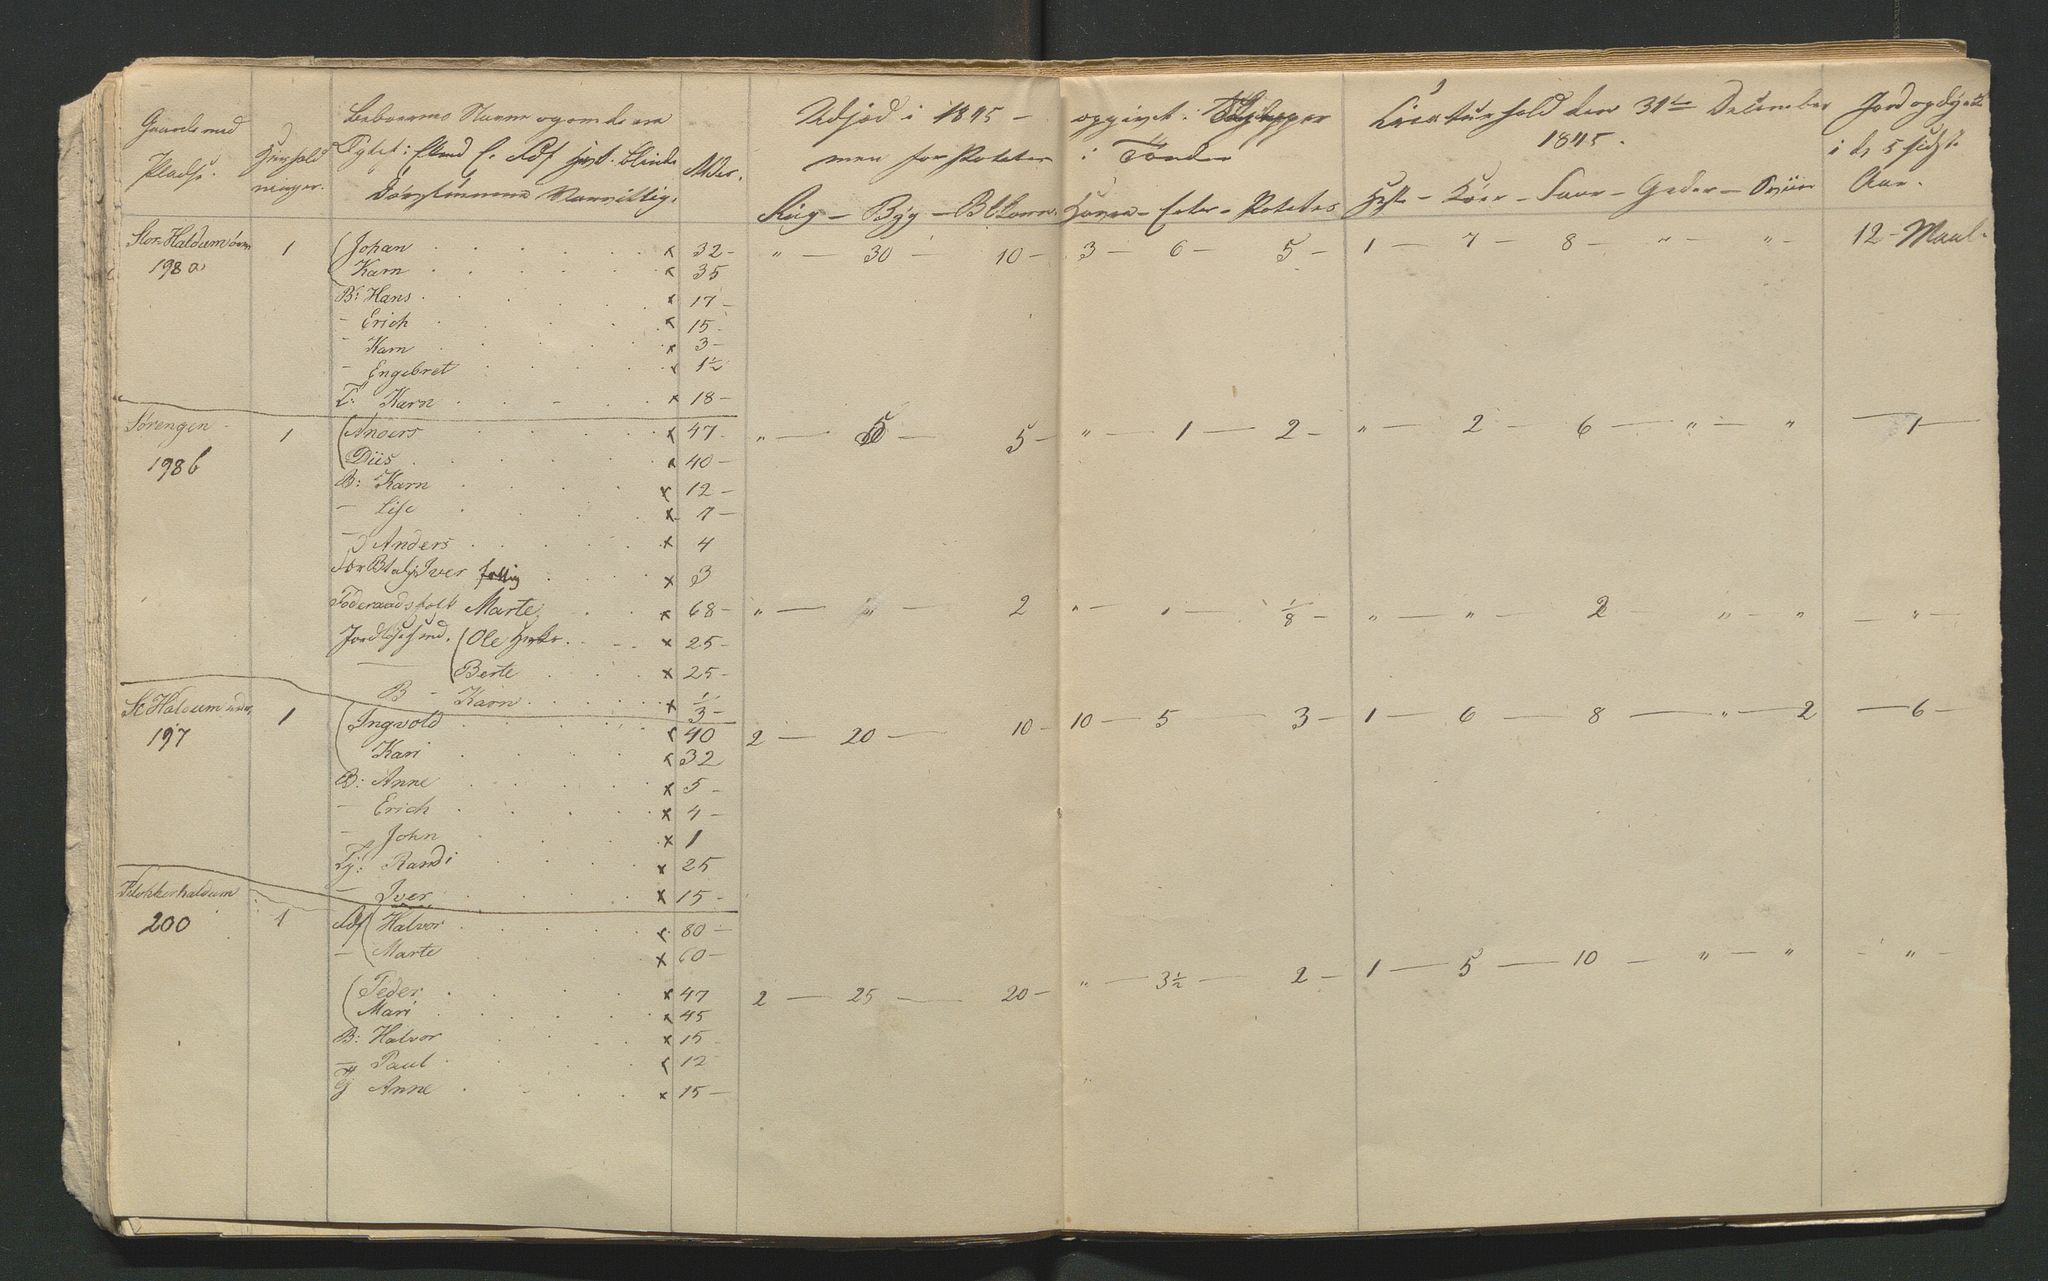 Gaarde med Pladse. Huushold ninger. Beboernes Navne og om de ere Alder. Udsæd i 1845 - opgivet i Skjepper Creaturhold den 31te December Jord opdyrket
Døvstumme Vanvittige. men for Poteter i Tønder 1845. i de 5 sidste Aar.
Rug - Byg - Blkorn. Havre - Erter - Poteter Heste - Køer - Faar - Geder - Sviin
Stor Haldum øvre 1 Johan x 32 - „ - 30 10 - 3 - 6 - 5 - 1 - 7 - 8 - „ - „ - 12 - Maal -
198 a Karn x 35
B: Hans x 17 -
- Erich x 15 -
- Karn x 3 -
- Engebret x 1½
T: Karn x 18 -
Sørengen 1 Anders x 47 - „ - 5 - 5 - „ - 1 - 2 - „ - 2 - 6 - „ - „ - 1 -
198 b Diis x 40 -
B: Karn x 12 -
- Lise x 7 -
- Anders x 4
Iver x 3
Føderaadsfolk Marte x 68 - „ - „ - 2 „ - - ⅛ - „ - „ - 2 - „ - „ - „ -
Jordløse Ind. Ole x 25 -
- Berte x 25 -
B - Karn x ⅓ -
St Haldum 1 Ingvold x 40 2 - 20 - 10 - 10 - 5 3 - 1 - 6 - 8 - „ - 2 - 6 -
197 Kari x 32
B: Anne x 5 -
- Erich x 4 -
- John x 1
Ty: Randi x 25
- Iver x 15 -
Klokkerhaldum
200 1 Halvor x 80 -
- Marte x 60 - 1 - 5 - 10 - „ - „ - „ -
Peder x 47 2 - 25 - 20 - „ - 3½ - 2 -
Mari x 45
B: Halvor x 15
- Paul x 12
G Anne x 15 -